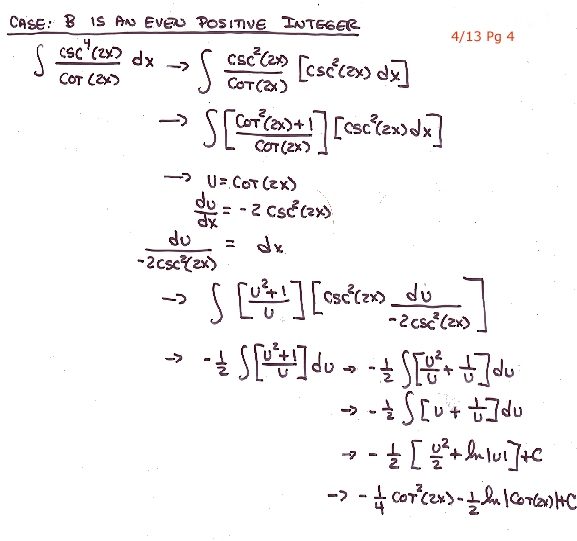 CASE: B IS AN EVEN POSITIVE INTEGER
4/13 Pg 4
∫ csc⁴(2x)/COT(2x) dx → ∫ csc²(2x)/COT(2x) [csc²(2x) dx]
→ ∫ [(COT²(2x)+1)/COT(2x)] [csc²(2x) dx]
→ U = COT(2x)
du/dx = -2 csc²(2x)
du/(-2csc²(2x)) = dx
→ ∫ [(U²+1)/U] [csc²(2x) du/(-2csc²(2x))]
→ -1/2 ∫ [(U²+1)/U] du → -1/2 ∫ [U²/U + 1/U] du
→ -1/2 ∫ [U + 1/U] du
→ -1/2 [U²/2 + ln|U|] + C
→ -1/4 COT²(2x) - 1/2 ln|COT(2x)| + C